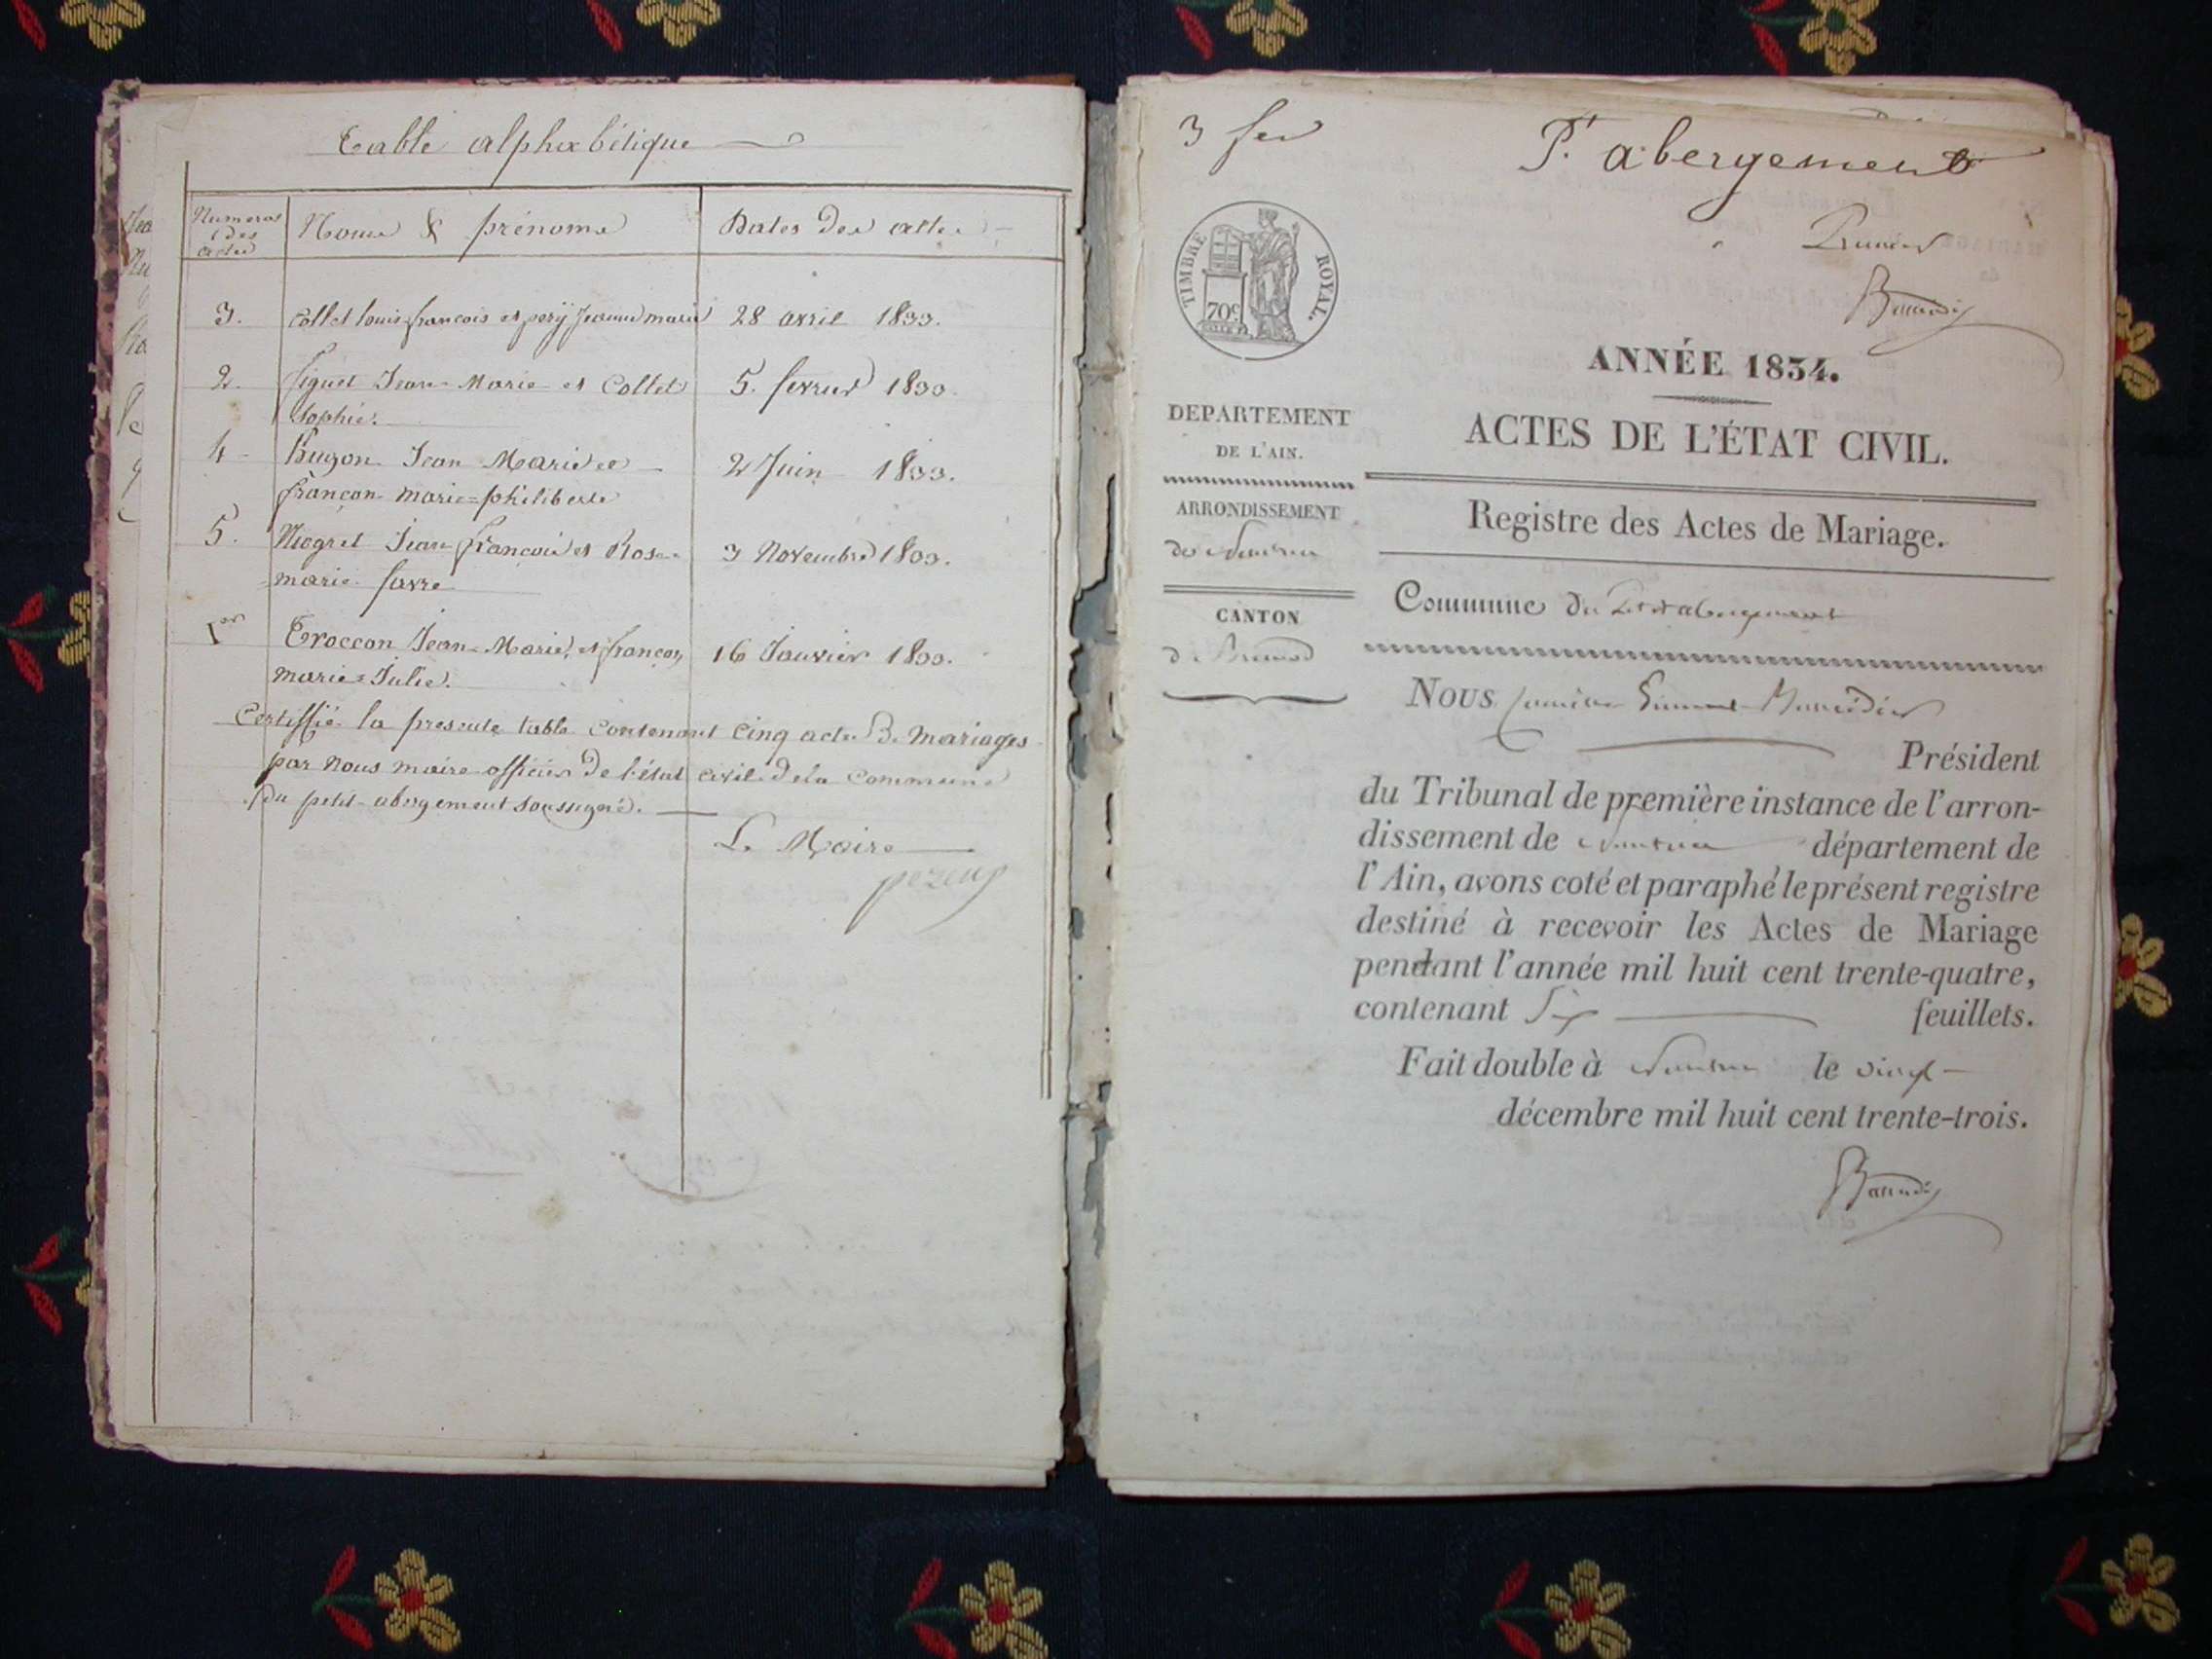 Table alphabétique
Numeros des actes
Noms & prénoms
Dates des actes
3. Collet louis françois et pery jeanne marie 28 avril 1833.
2. figuet Jean-Marie et Collet 5. fevrier 1833.
Sophie.
4 Bugon Jean Marie et 2 Juin 1833.
françon marie=philiberte
5. Niogret Jean françois et Rose 3 Novembre 1833.
marie favre
1er Troccon Jean-Marie, et françon 16 Janvier 1833.
marie=Julie.
Certiffié la presente table contenant Cinq actes De mariages
par nous maire officier de l'état civil de la Commune
du petit-abergement soussigné.
Le Maire
3 fer
Pt abergement
Premier
TIMBRE ROYAL.
70c
ANNÉE 1834.
ACTES DE L'ÉTAT CIVIL.
Registre des Actes de Mariage.
DEPARTEMENT
DE L'AIN.
ARRONDISSEMENT
de Nantua
CANTON
de Brenod
Commune du Petit abergement
NOUS
Président
du Tribunal de première instance de l'arron-
dissement de Nantua département de
l'Ain, avons coté et paraphé le présent registre
destiné à recevoir les Actes de Mariage
pendant l'année mil huit cent trente-quatre,
contenant Six feuillets.
Fait double à Nantua le vingt
décembre mil huit cent trente-trois.